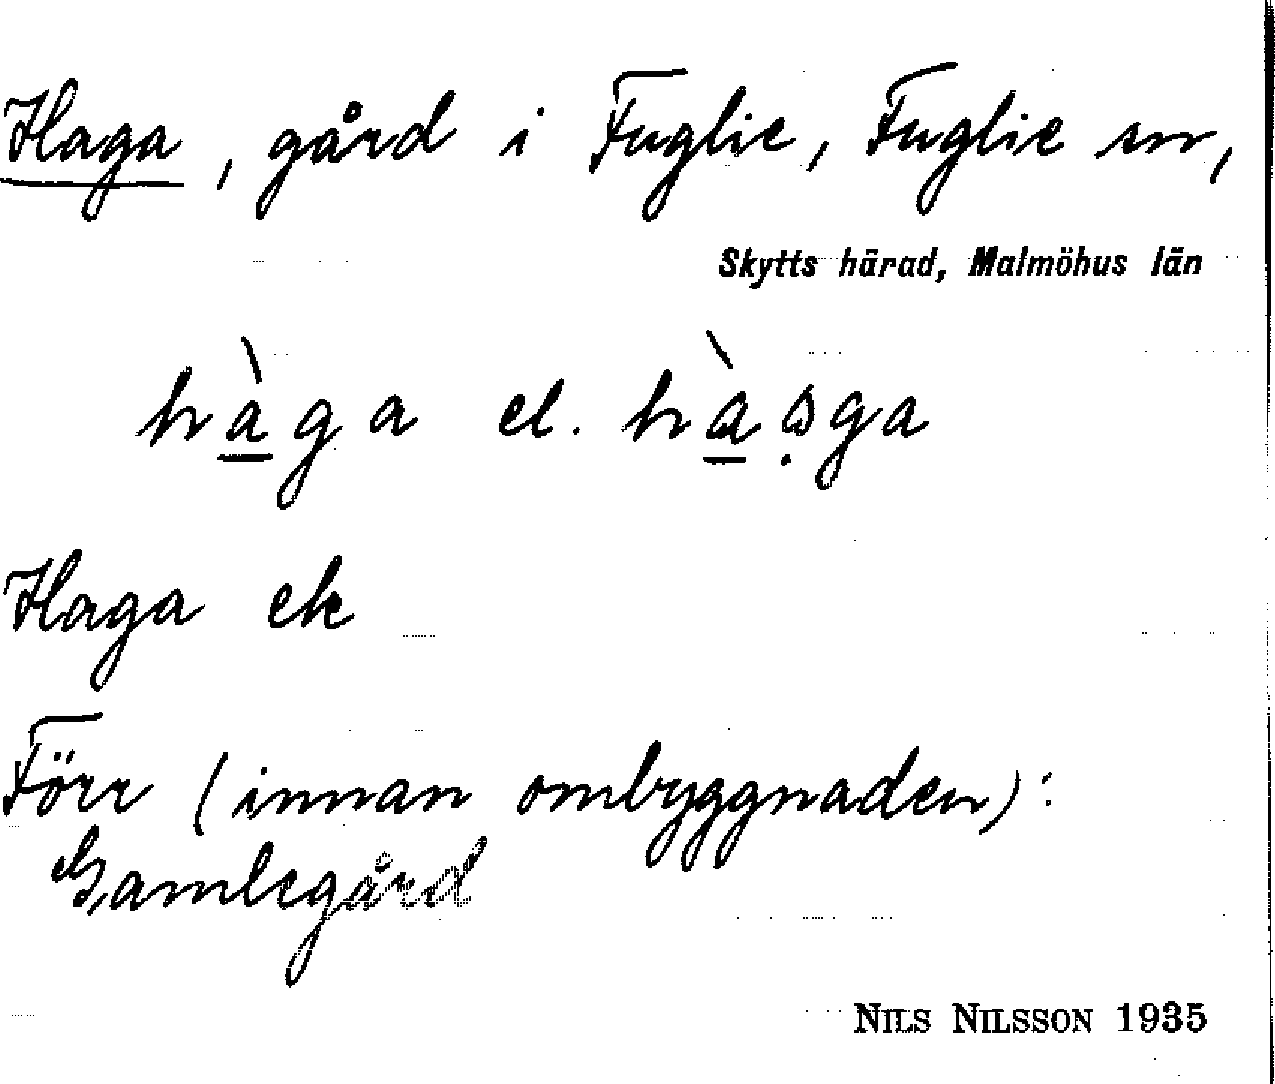 Haga, gård i Fuglie, Fuglie sn,
Skytts härad, Malmöhus län
hàga el. hàạga
Haga ek
Förr (innan ombyggnaden):
Gamlegård
NILS NILSSON 1935